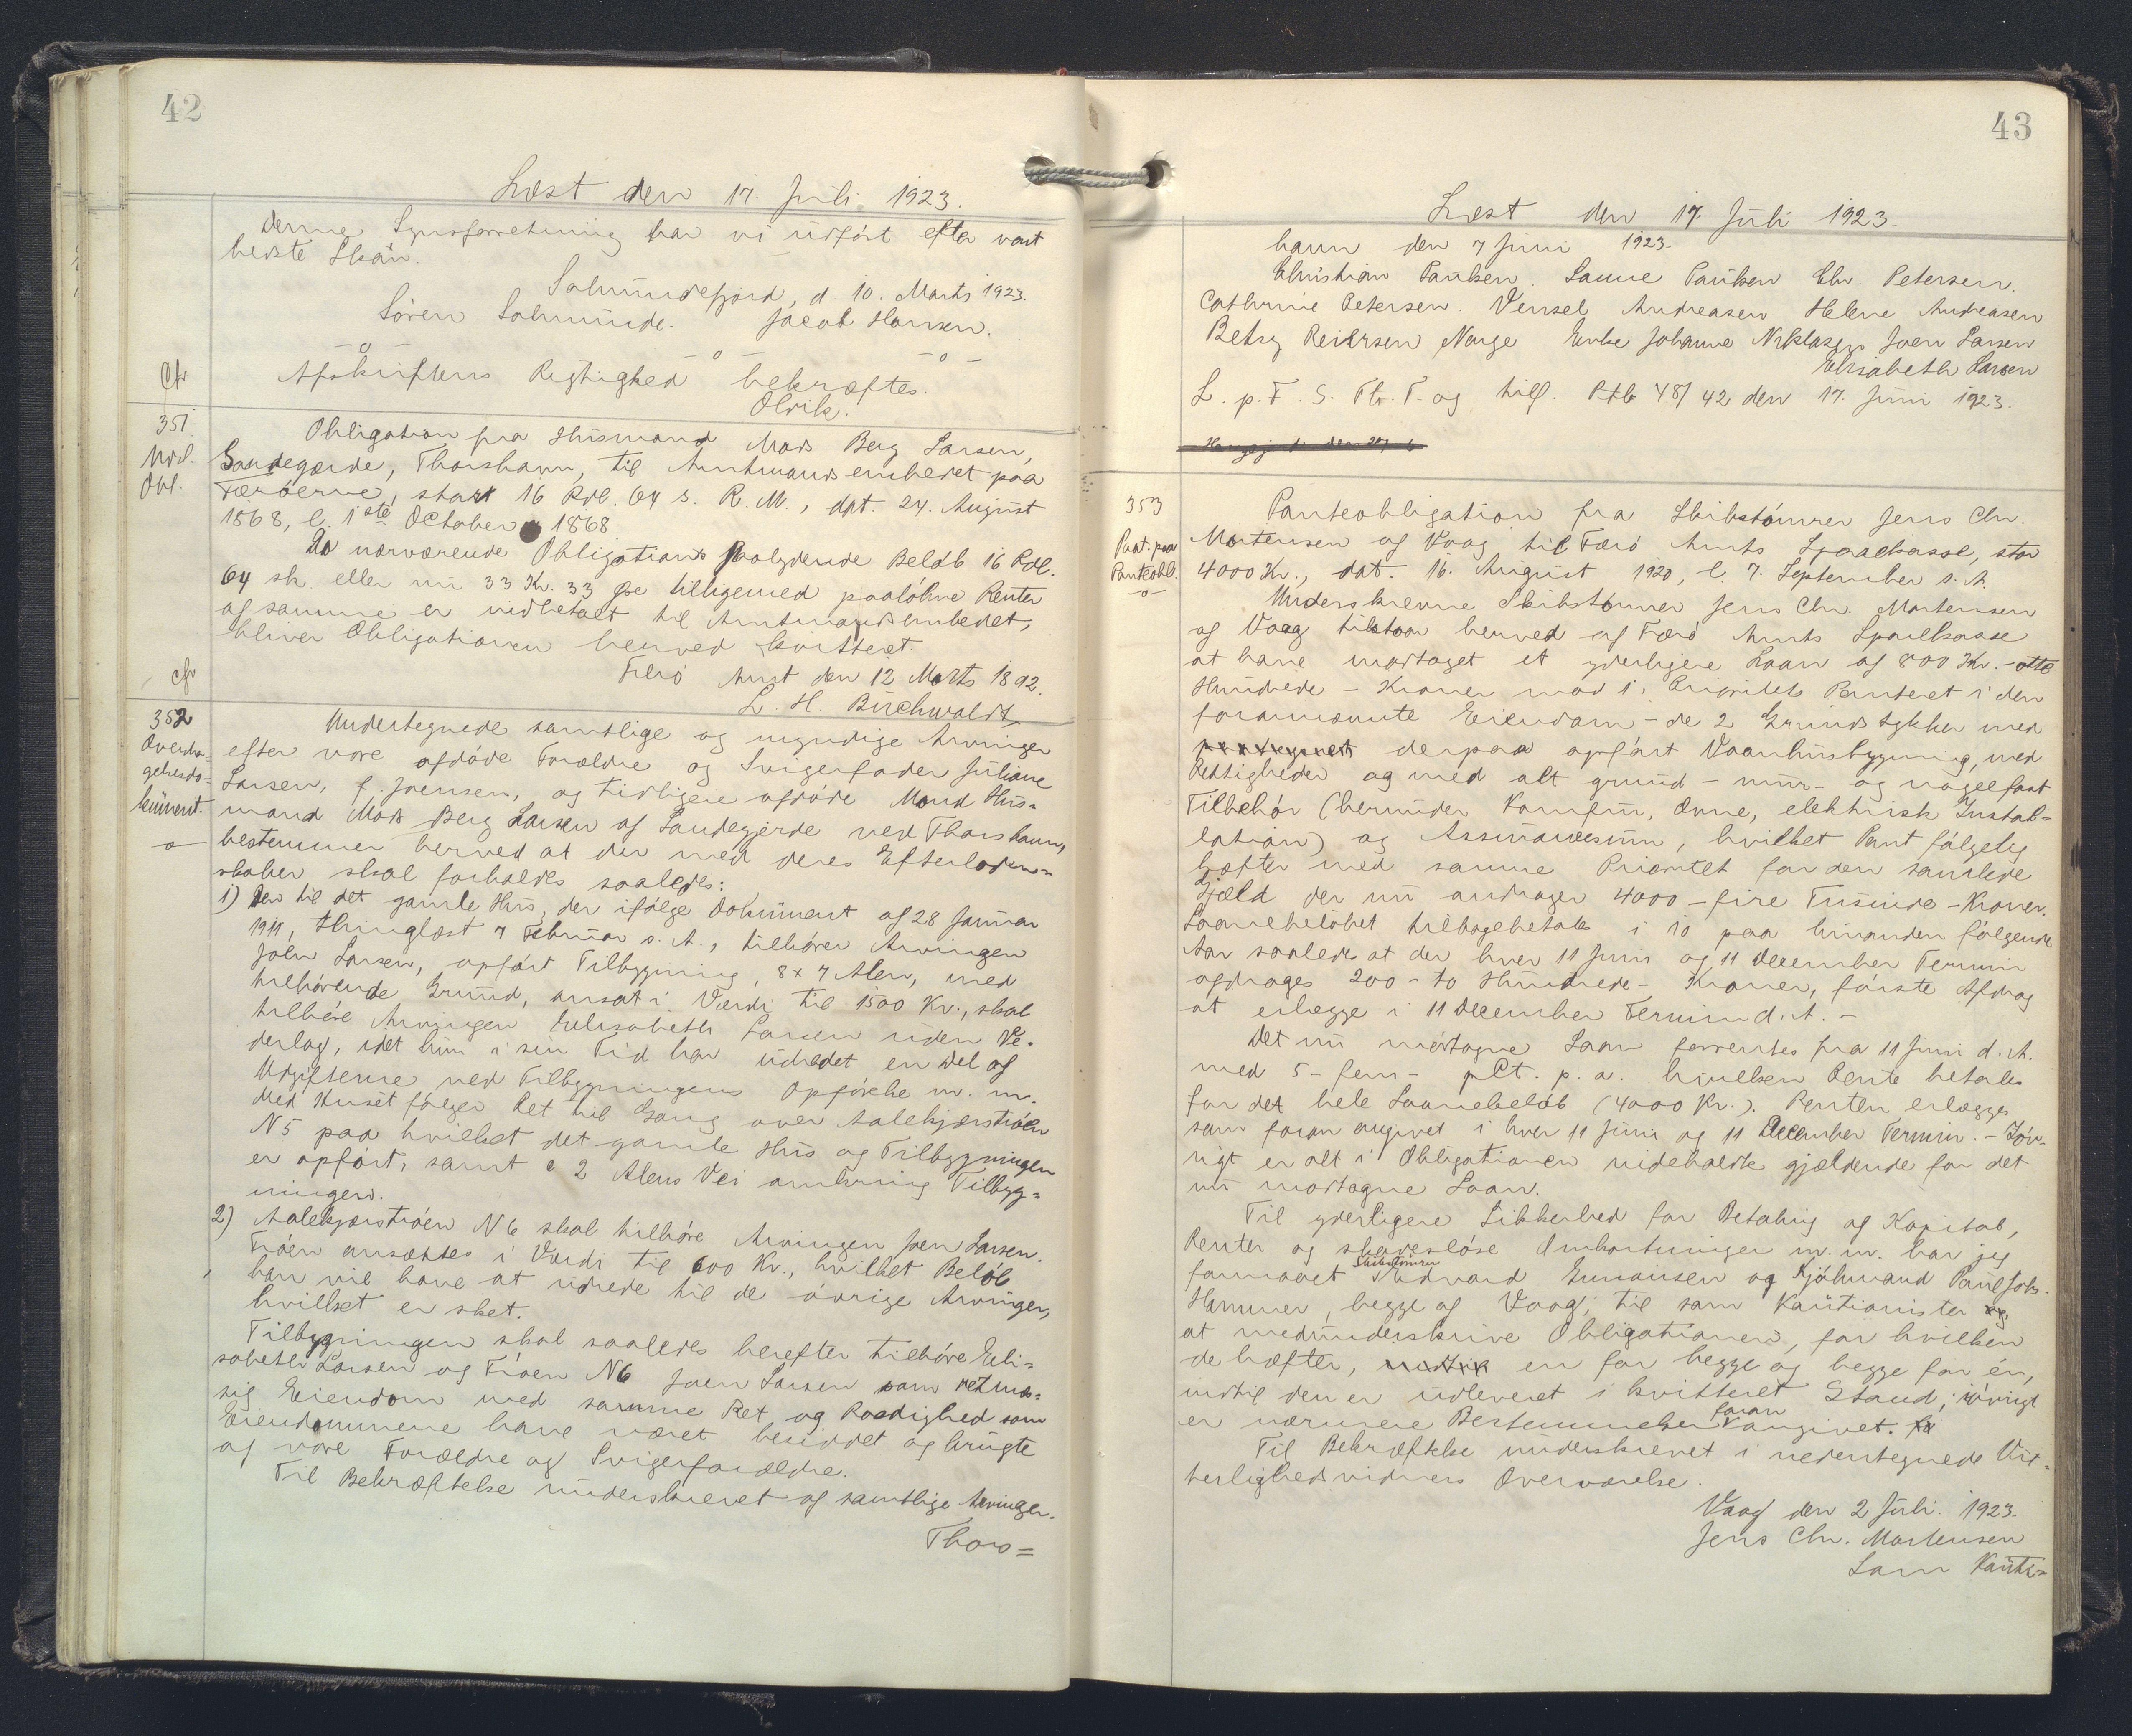 42
Læst den 17. Juli 1923.
Denne Synsforretning har vi udført efter vort
bedste Skøn.
Salmundefjord, d. 10. Marts 1923.
Søren Salmunde. Jacob Hansen.
-o- -o- -o-
Cfr
Afskriftens Rigtighed bekræftes.
Olrik.
351
Udsl.
Obl.
Obligation fra Husmand Mads Berg Larsen,
Sandegærde, Thorshavn, til Amtmandsembedet paa
Færøerne, stor 16 Rdl. 64 s. R. M., dat. 24. August
1868, l. 1ste October 1868
Da nærværende Obligations paalydende Beløb 16 Rdl.
64 sk. eller nu 33 Kr. 33 Øre tilligemed paaløbne Renter
af samme er indbetalt til Amtmandsembedet,
bliver Obligationen herved kvitteret.
Færø Amt den 12 Marts 1892.
cfr
L. H. Buchwaldt
352
Overdra-
gelsesdo-
kument.
-o-
Undertegnede samtlige og myndige Arvinger
efter vore afdøde Forældre og Svigerfader Juliane
Larsen, f. Joensen, og tidligere afdøde Mand Hus-
mand Mads Berg Larsen af Sandegjerde ved Thorshavn,
bestemmer herved at der med deres Efterladen-
skaber skal forholdes saaledes:
1) Den til det gamle Hus, der ifølge Dokument af 28 Januar
1911, thinglæst 7 Februar s. A., tilhører Arvingen
Joen Larsen, opført Tilbygning, 8 x 7 Alen, med
tilhørende Grund, ansat i Værdi til 1500 Kr., skal
tilhøre Arvingen Elisabeth Larsen uden Ve-
derlag, idet hun i sin Tid har udredet en Del af
Udgifterne ved Tilbygningens Opførelse m. m.
Med Huset følger Ret til Gang over Aalekjærstrøen
N 5 paa hvilket det gamle Hus og Tilbygningen
er opført, samt c 2 Alens Vei omkring Tilbyg-
ningen.
2) Aalekjærstrøen N 6 skal tilhøre Arvingen Joen Larsen.
Trøen ansættes i Værdi til 600 Kr., hvilket Beløb
han vil have at udrede til de øvrige Arvinger,
hvilket er sket.
Tilbygningen skal saaledes herefter tilhøre Eli-
sabeth Larsen og Trøen N6 Joen Larsen som retmæs-
sig Eiendom med samme Ret og Raadighed som
Eiendommene have været besiddet og brugte
af vore Forældre og Svigerforældre.
Til Bekræftelse underskrevet af samtlige Arvinger.
Thors=
43
Læst den 17. Juli 1923.
havn den 7 Juni 1923.
Christian Paulsen. Sanne Paulsen Chr. Petersen.
Cathrine Petersen. Vensel Andreasen Helene Andreasen
Betsy Reiersen Norge Enke Johanne Niklasen Joen Larsen
Elisabeth Larsen
L. p. F. S. Th. T. og tilf. Ptb 48/42 den 17. Juni 1923.
353
Paat. paa
Panteobl.
-o-
Panteobligation fra Skibstømrer Jens Chr.
Mortensen af Vaag til Færø Amts Sparekasse, stor
4000 Kr., dat. 16. August 1920, l. 7. September s. A.
Underskrevne Skibstømrer Jens Chr. Mortensen
af Vaag tilstaar herved af Færø Amts Sparekasse
at have modtaget et yderligere Laan af 800 Kr. - otte
Hundrede - Kroner mod 1. Prioritets Panteret i den
forannævnte Eiendom - de 2 Grundstykker med
derpaa opført Vaanhusbygning, med
Rettigheder og med alt grund - mur - og nagelfast
Tilbehør (herunder Komfur, Ovne, elektrisk Instal-
lation) og Assurancesum, hvilket Pant følgelig
hæfter med samme Prioritet for den samlede
Gjæld der nu andrager 4000 - fire Tusinde - Kroner.
Laanebeløbet tilbagebetales i 10 paa hinanden følgende
Aar saaledes at der hver 11 Juni og 11 December Termin
afdrages 200 - to Hundrede - Kroner, første Afdrag
at erlægge i 11 December Termin d. A. -
Det nu modtagne Laan forrentes fra 11 Juni d. A.
med 5 - fem - pCt. p. a. hvilken Rente betales
for det hele Laanebeløb (4000 Kr.). Renten erlægges
som foran angivet i hver 11 Juni og 11 December Termin. - Iøv-
rigt er alt i Obligationen indeholdte gjældende for det
nu modtagne Laan.
Til yderligere Sikkerhed for Betaling af Kapital,
Renter og skadesløse Omkostninger m. m. har jeg
formaaet Skibstømrer Edvard Enniusen og Kjøbmand Paul Joh.
Hammer, begge af Vaag, til som Kautionister
at medunderskrive Obligationen, for hvilken
de hæfter, en for begge og begge for én,
indtil den er udleveret i kvitteret Stand; iøvrigt
er nærmere Bestemmelser foran angivet.
Til Bekræftelse underskrevet i nedentegnede Vit-
terlighedsvidners Overværelse.
Vaag den 2 Juli 1923.
Jens Chr. Mortensen
Som Kauti=